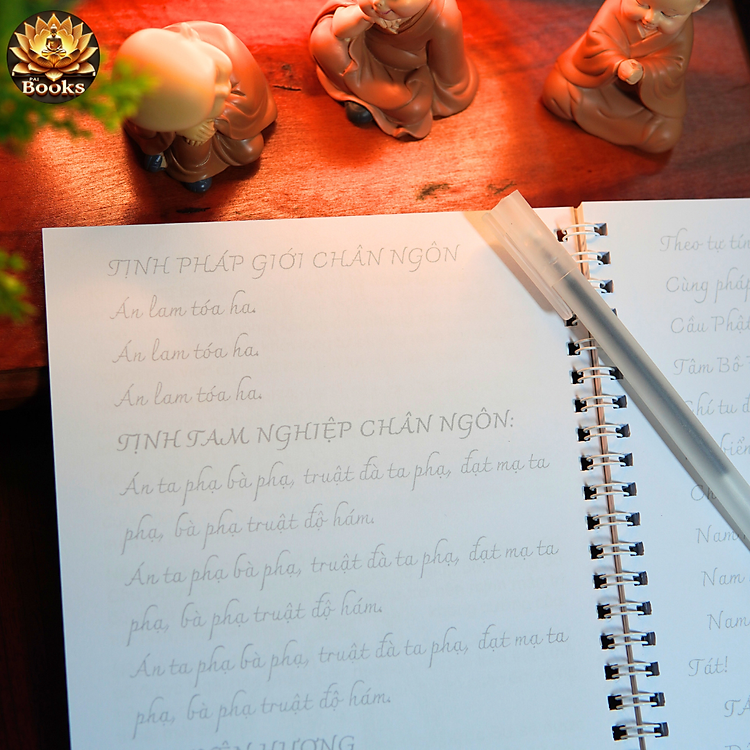 PAI
Books
TỊNH PHÁP GIỚI CHÂN NGÔN
Án lam tóa ha.
Án lam tóa ha.
Án lam tóa ha.
TỊNH TAM NGHIỆP CHÂN NGÔN:
Án ta phạ bà phạ, truật đà ta phạ, đạt mạ ta
phạ, bà phạ truật độ hám.
Án ta phạ bà phạ, truật đà ta phạ, đạt mạ ta
phạ, bà phạ truật độ hám.
Án ta phạ bà phạ, truật đà ta phạ, đạt mạ ta
phạ, bà phạ truật độ hám.
HƯƠNG
Theo tự tín
Cùng pháp
Cầu Phật
Tâm Bồ
Chí tu
Nam
Nam
Nam
Tát!